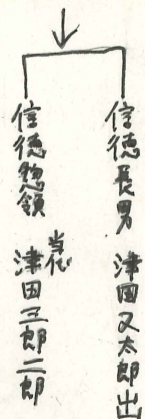 信徳長男 津田又太郎出
信徳惣領 当代 津田三郎二郎